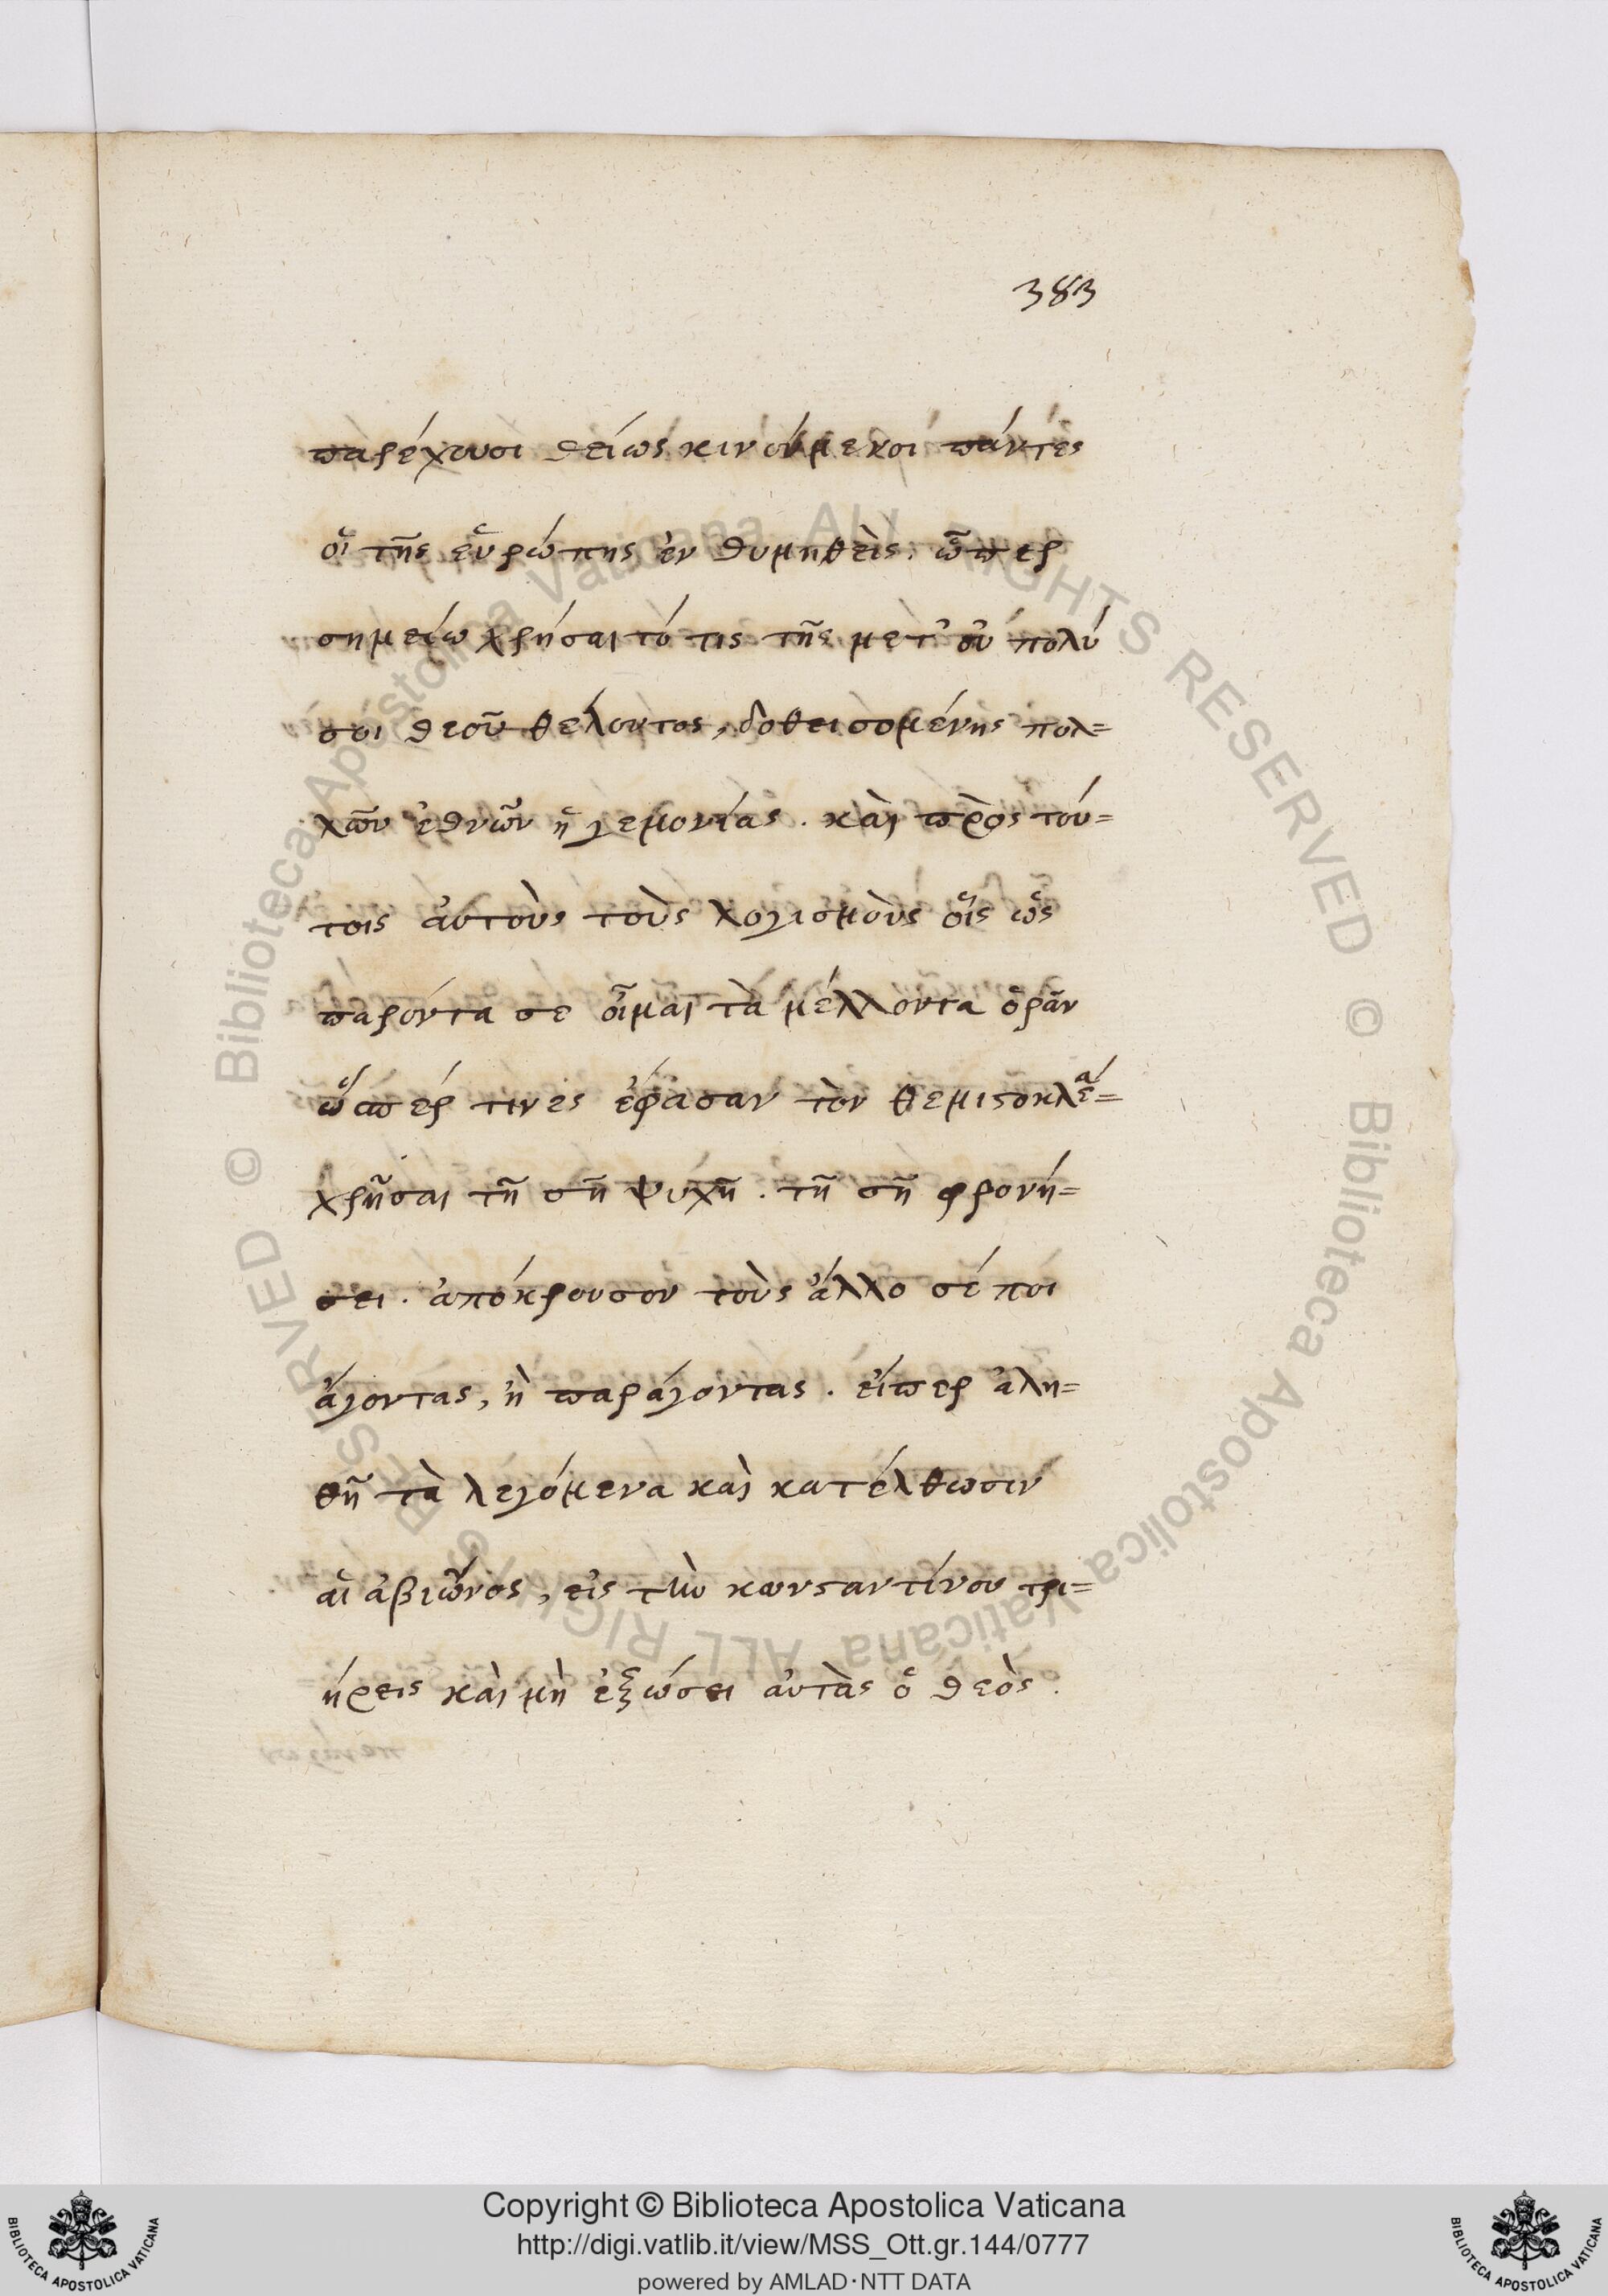 383
παρέχουσι θείως κινούμενοι πάντες
οἱ τῆς εὑρώπης ἐν θυμηθεὶς. ὧπερ
σημείω χρήσαι τό τις τῆς μετ' οὐ πολύ
σοι θεοῦ θέλοντος, δοθεισομένης πολ=
λῶν ἐθνῶν ἡγεμονίας. καὶ πρὸς τού=
τοις αὐτοὺς τοὺς λογισμοὺς οἷς ὡς
παρόντα σε οἶμαι τὰ μέλλοντα ὁρᾶν
ὥσπερ τινες ἔφασαν τὸν θεμιστοκλέα=
χρῆσαι τῆ σῆ ψυχῆ. τῆ σῆ φρονή=
σει. ἀπόκρουσον τοὺς ἄλλο σέ ποι
ἄγοντας, ἢ παράγοντας. εἴπερ ἀλη=
θῆ τὰ λεγόμενα καὶ κατέλθωσιν
αἱ ἀβιῶνος, εἰς τὴν κωνσταντίνου τρι=
ήρεις καὶ μὴ ἐξώσει αὐτὰς ὁ θεὸς.
Copyright © Biblioteca Apostolica Vaticana
http://digi.vatlib.it/view/MSS_Ott.gr.144/0777
powered by AMLAD·NTT DATA
BIBLIOTECA APOSTOLICA VATICANA
BIBLIOTECA APOSTOLICA VATICANA
© Biblioteca Apostolica Vaticana ALL RIGHTS RESERVED © Biblioteca Apostolica Vaticana ALL RIGHTS RESERVED